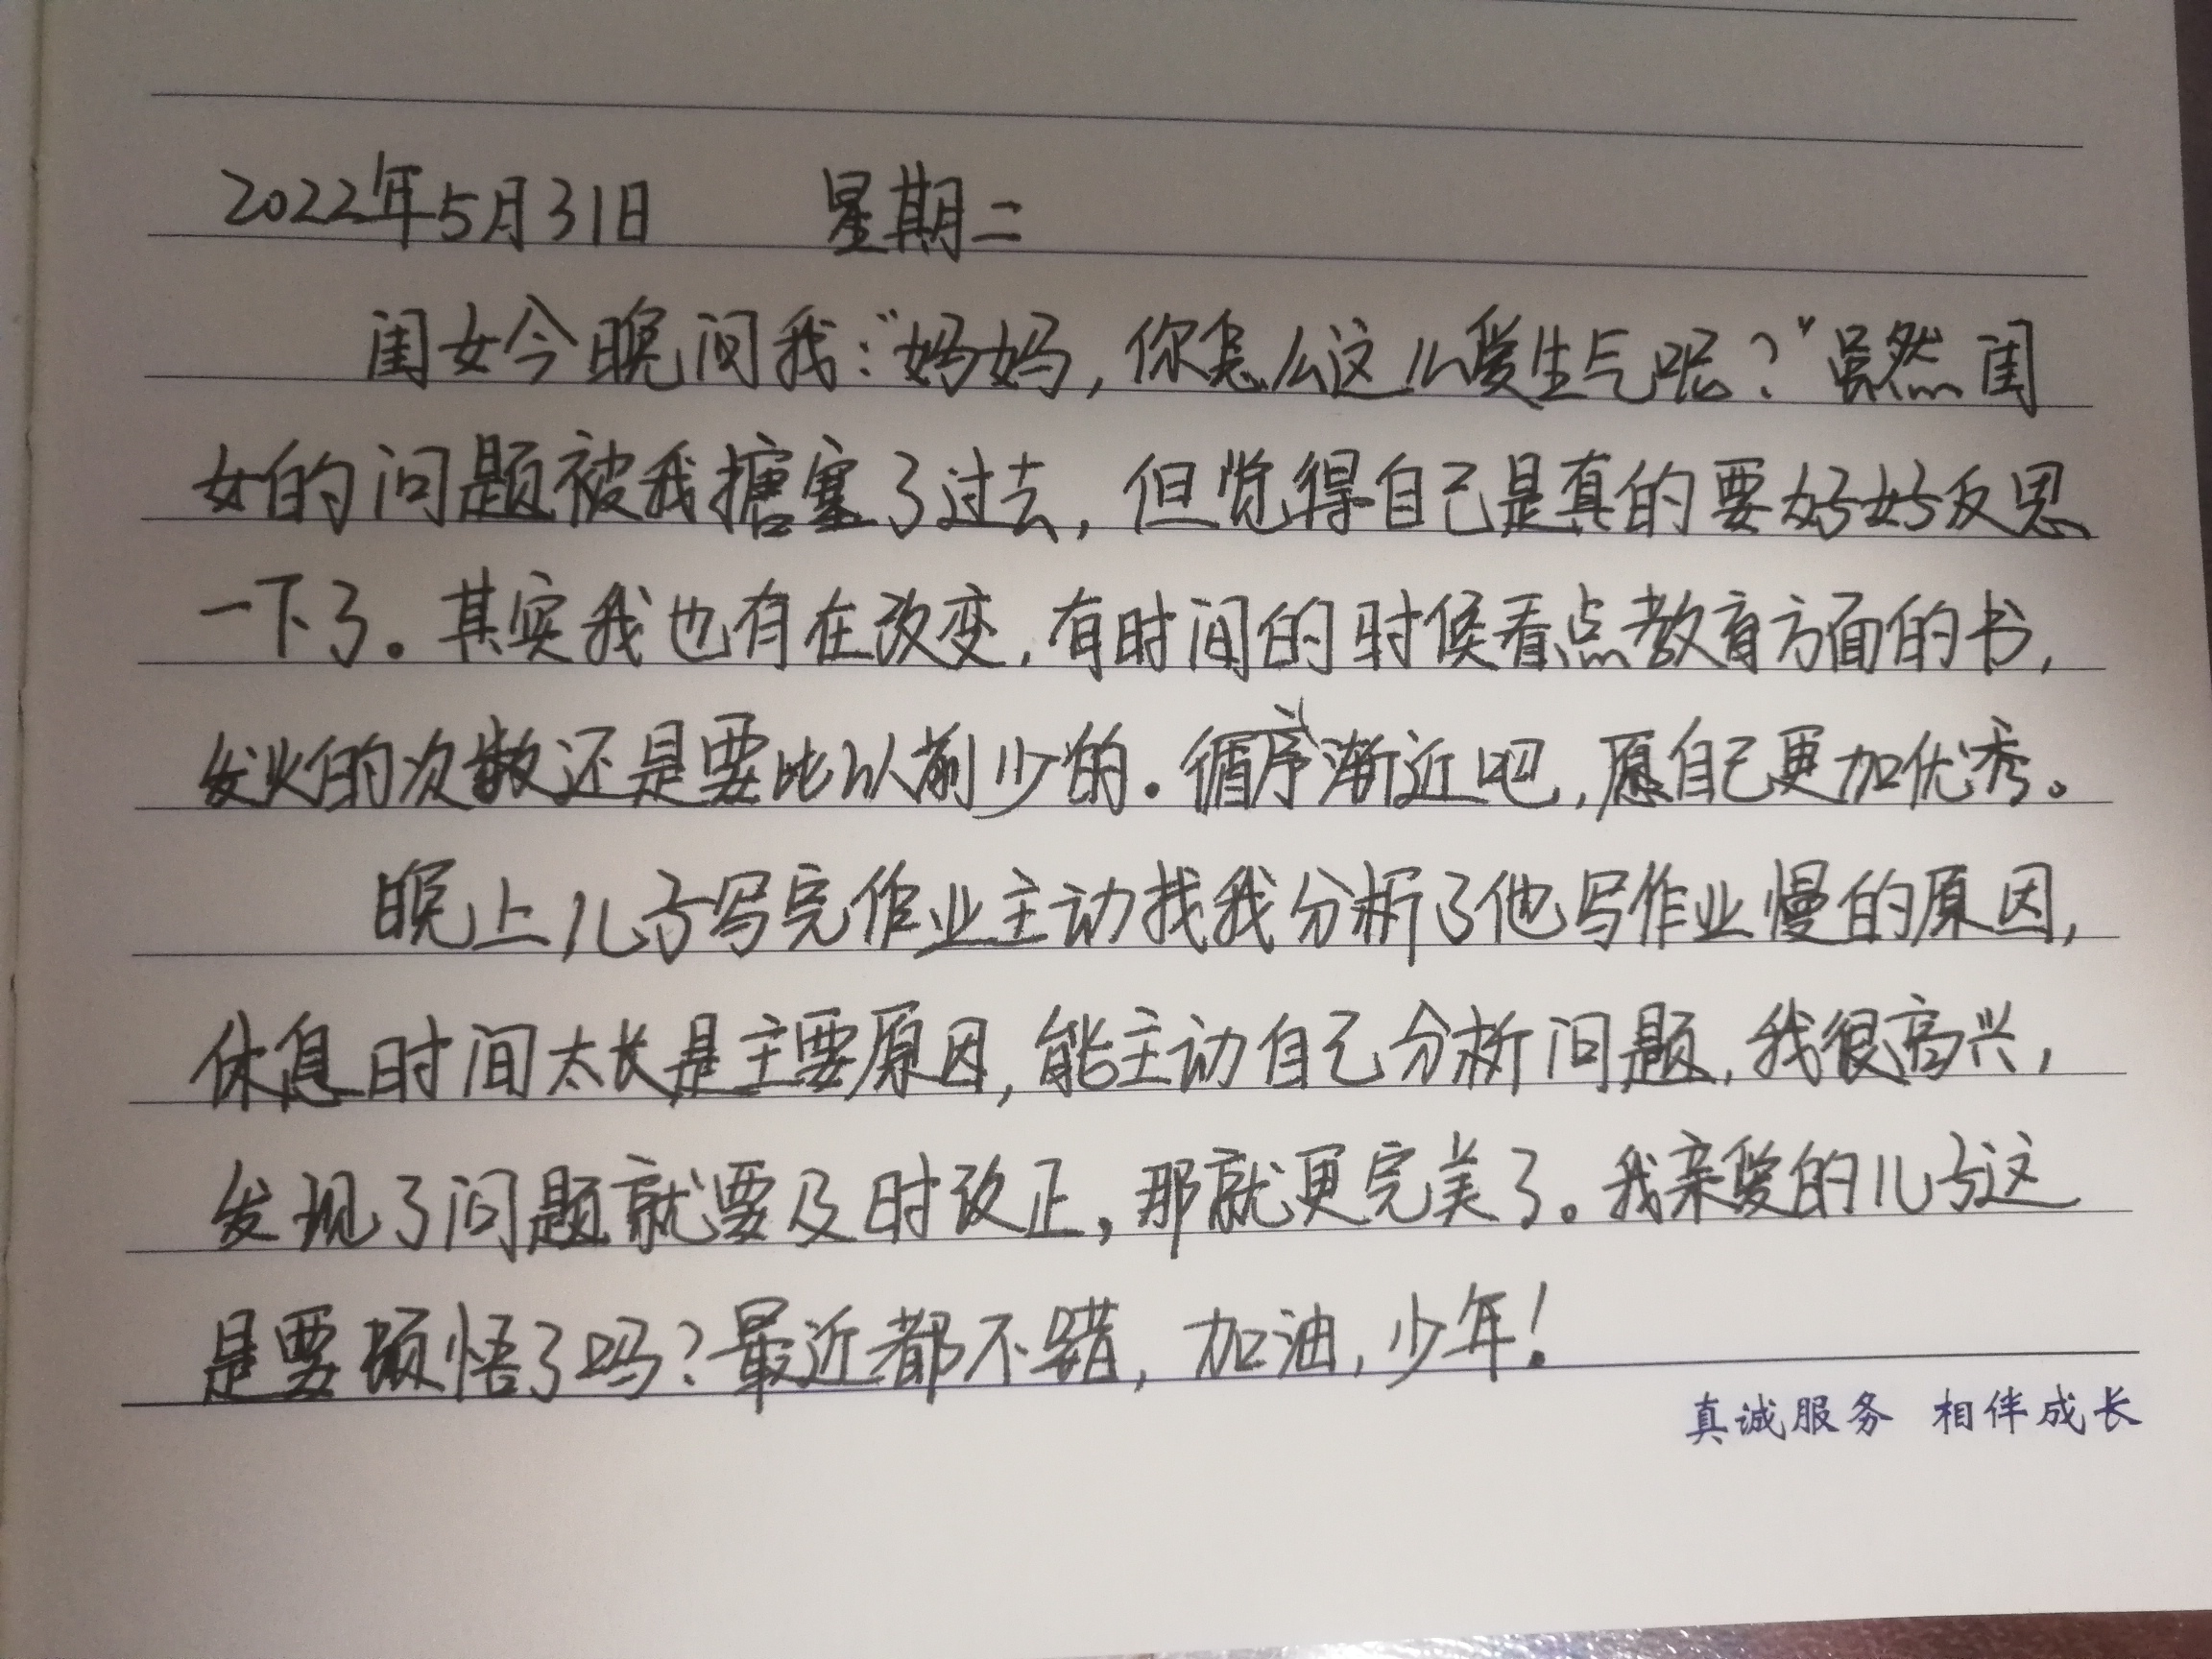 2022年5月31日 星期二
闺女今晚问我：“妈妈，你怎么这么爱生气呢？”虽然闺
女的问题被我搪塞了过去，但觉得自己是真的要好好反思
一下了。其实我也有在改变，有时间的时候看点教育方面的书，
发火的次数还是要比以前少的。循序渐近吧，愿自己更加优秀。
晚上儿子写完作业主动找我分析了他写作业慢的原因，
休息时间太长是主要原因，能主动自己分析问题，我很高兴，
发现了问题就要及时改正，那就更完美了。我亲爱的儿子这
是要顿悟了吗？最近都不错，加油，少年！
真诚服务 相伴成长